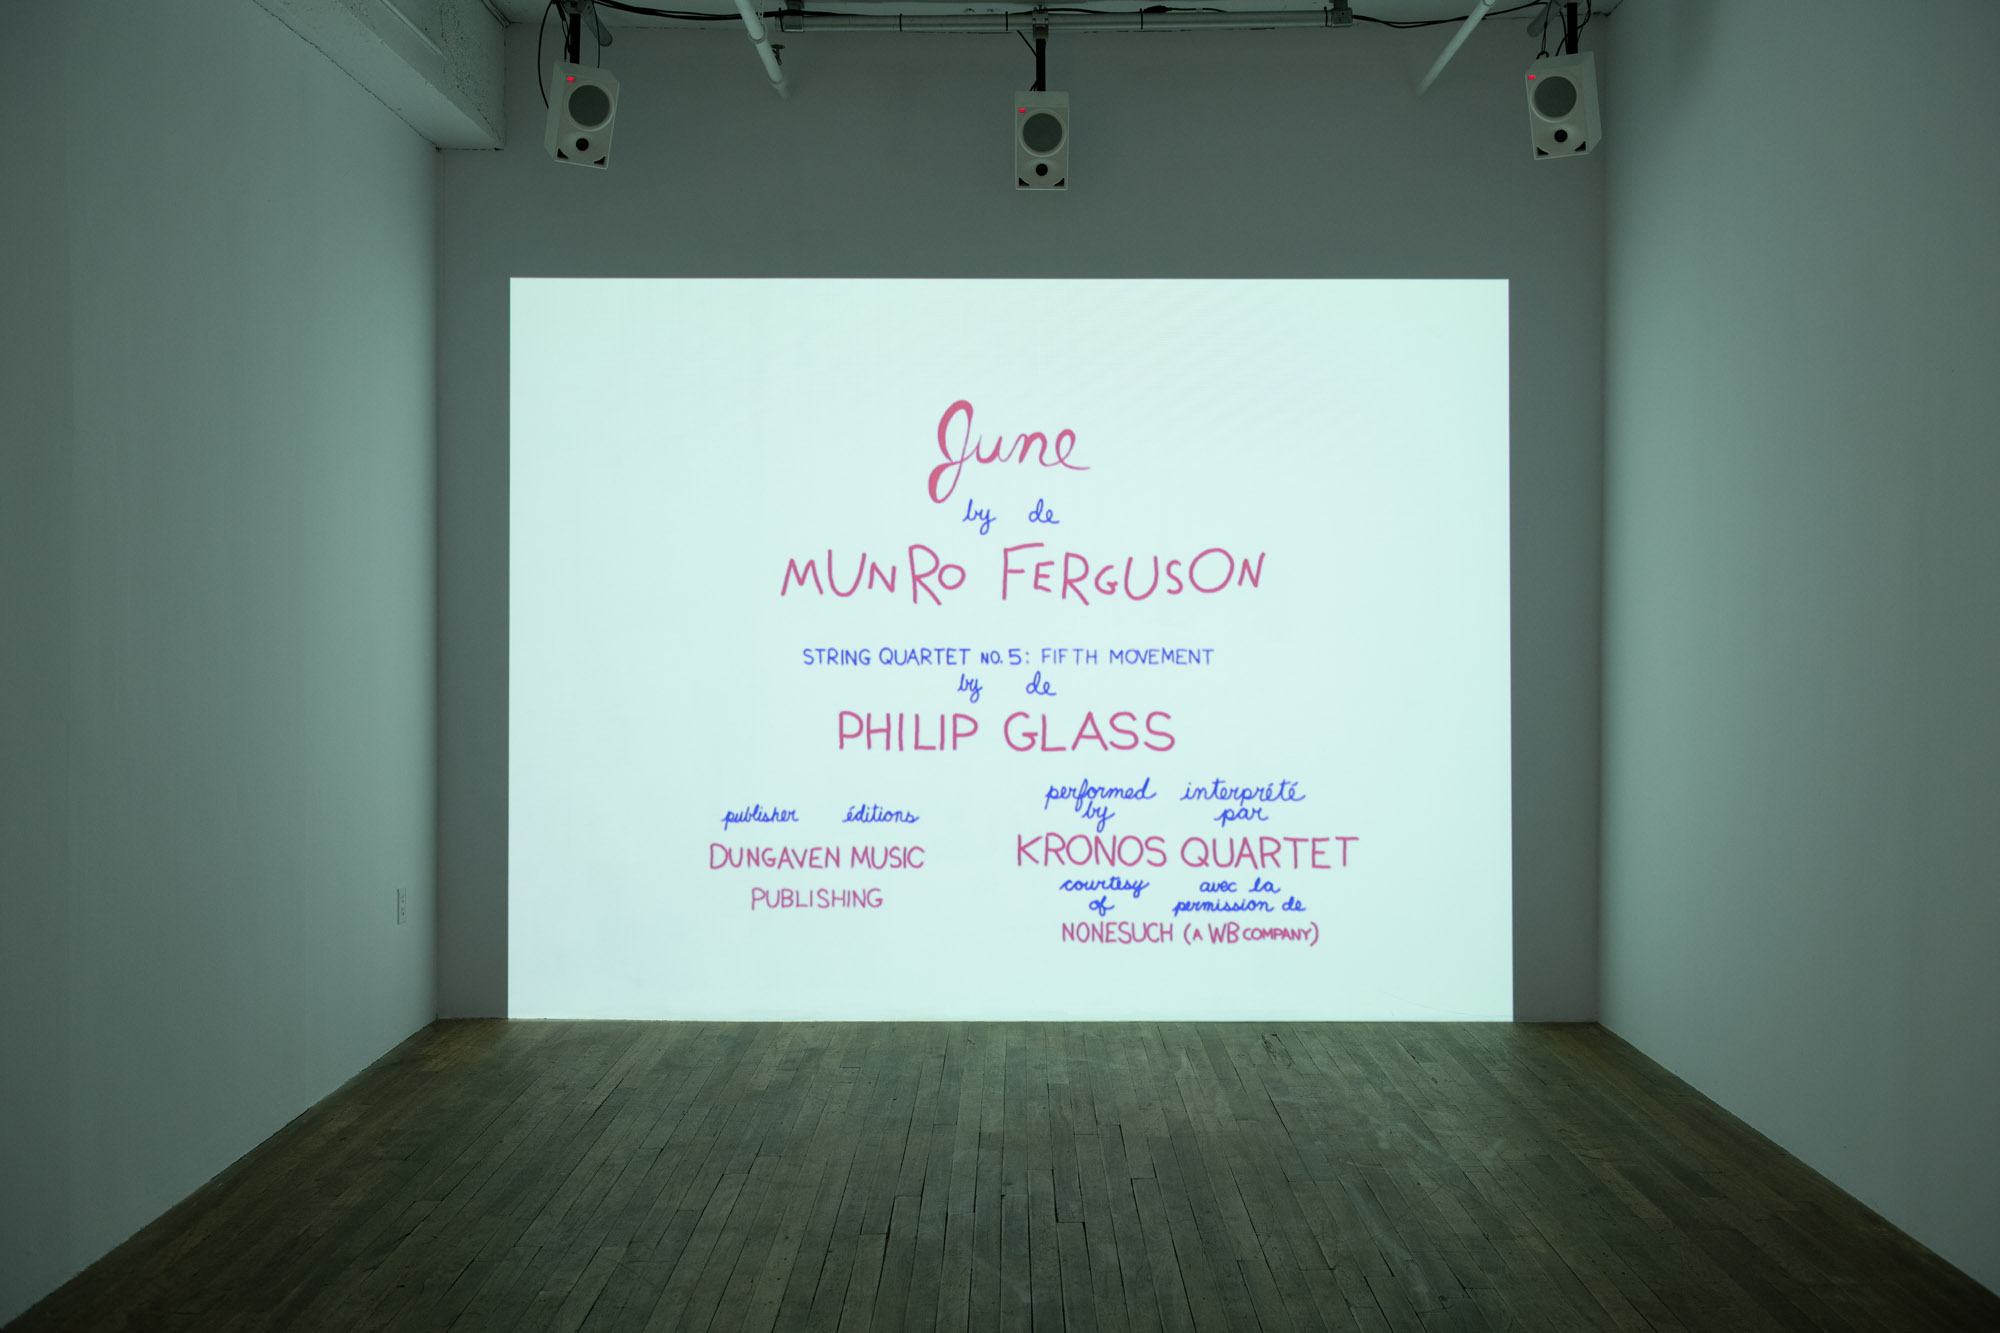 June
by de
MUNRO FERGUSON
STRING QUARTET NO. 5: FIFTH MOVEMENT
by de
PHILIP GLASS
publisher éditions
DUNGAVEN MUSIC
PUBLISHING
performed interprété
by par
KRONOS QUARTET
courtesy avec la
of permission de
NONESUCH (A WB COMPANY)